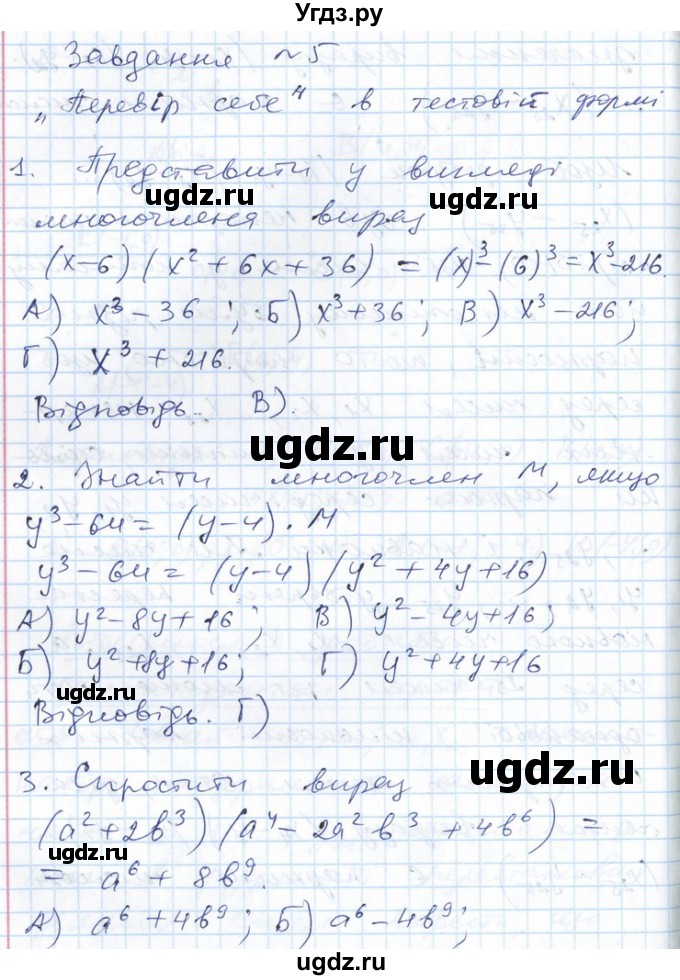 Угдз.ру
Завдання №5
"Перевір себе" в тестовій формі
1. Представити у вигляді
ugdz.ru ugdz.ru
многочленя вираз
(x-6)(x² + 6x + 36) = (x)³-(6)³ = x³-216.
А) x³ - 36; Б) x³ + 36; В) x³ - 216;
Г) x³ + 216.
Відповідь. В).
ugdz.ru
2. Знайти многочлен М, якщо
y³ - 64 = (y-4) · М
y³ - 64 = (y-4)(y² + 4y + 16)
А) y² - 8y + 16; В) y² - 4y + 16;
Б) y² + 8y + 16; Г) y² + 4y + 16
ugdz.ru
Відповідь. Г)
ugdz.ru
3. Спростити вираз
(a² + 2b³)(a⁴ - 2a²b³ + 4b⁶) =
ugdz.ru
= a⁶ + 8b⁹.
А) a⁶ + 4b⁹; Б) a⁶ - 4b⁹;
ugdz.ru